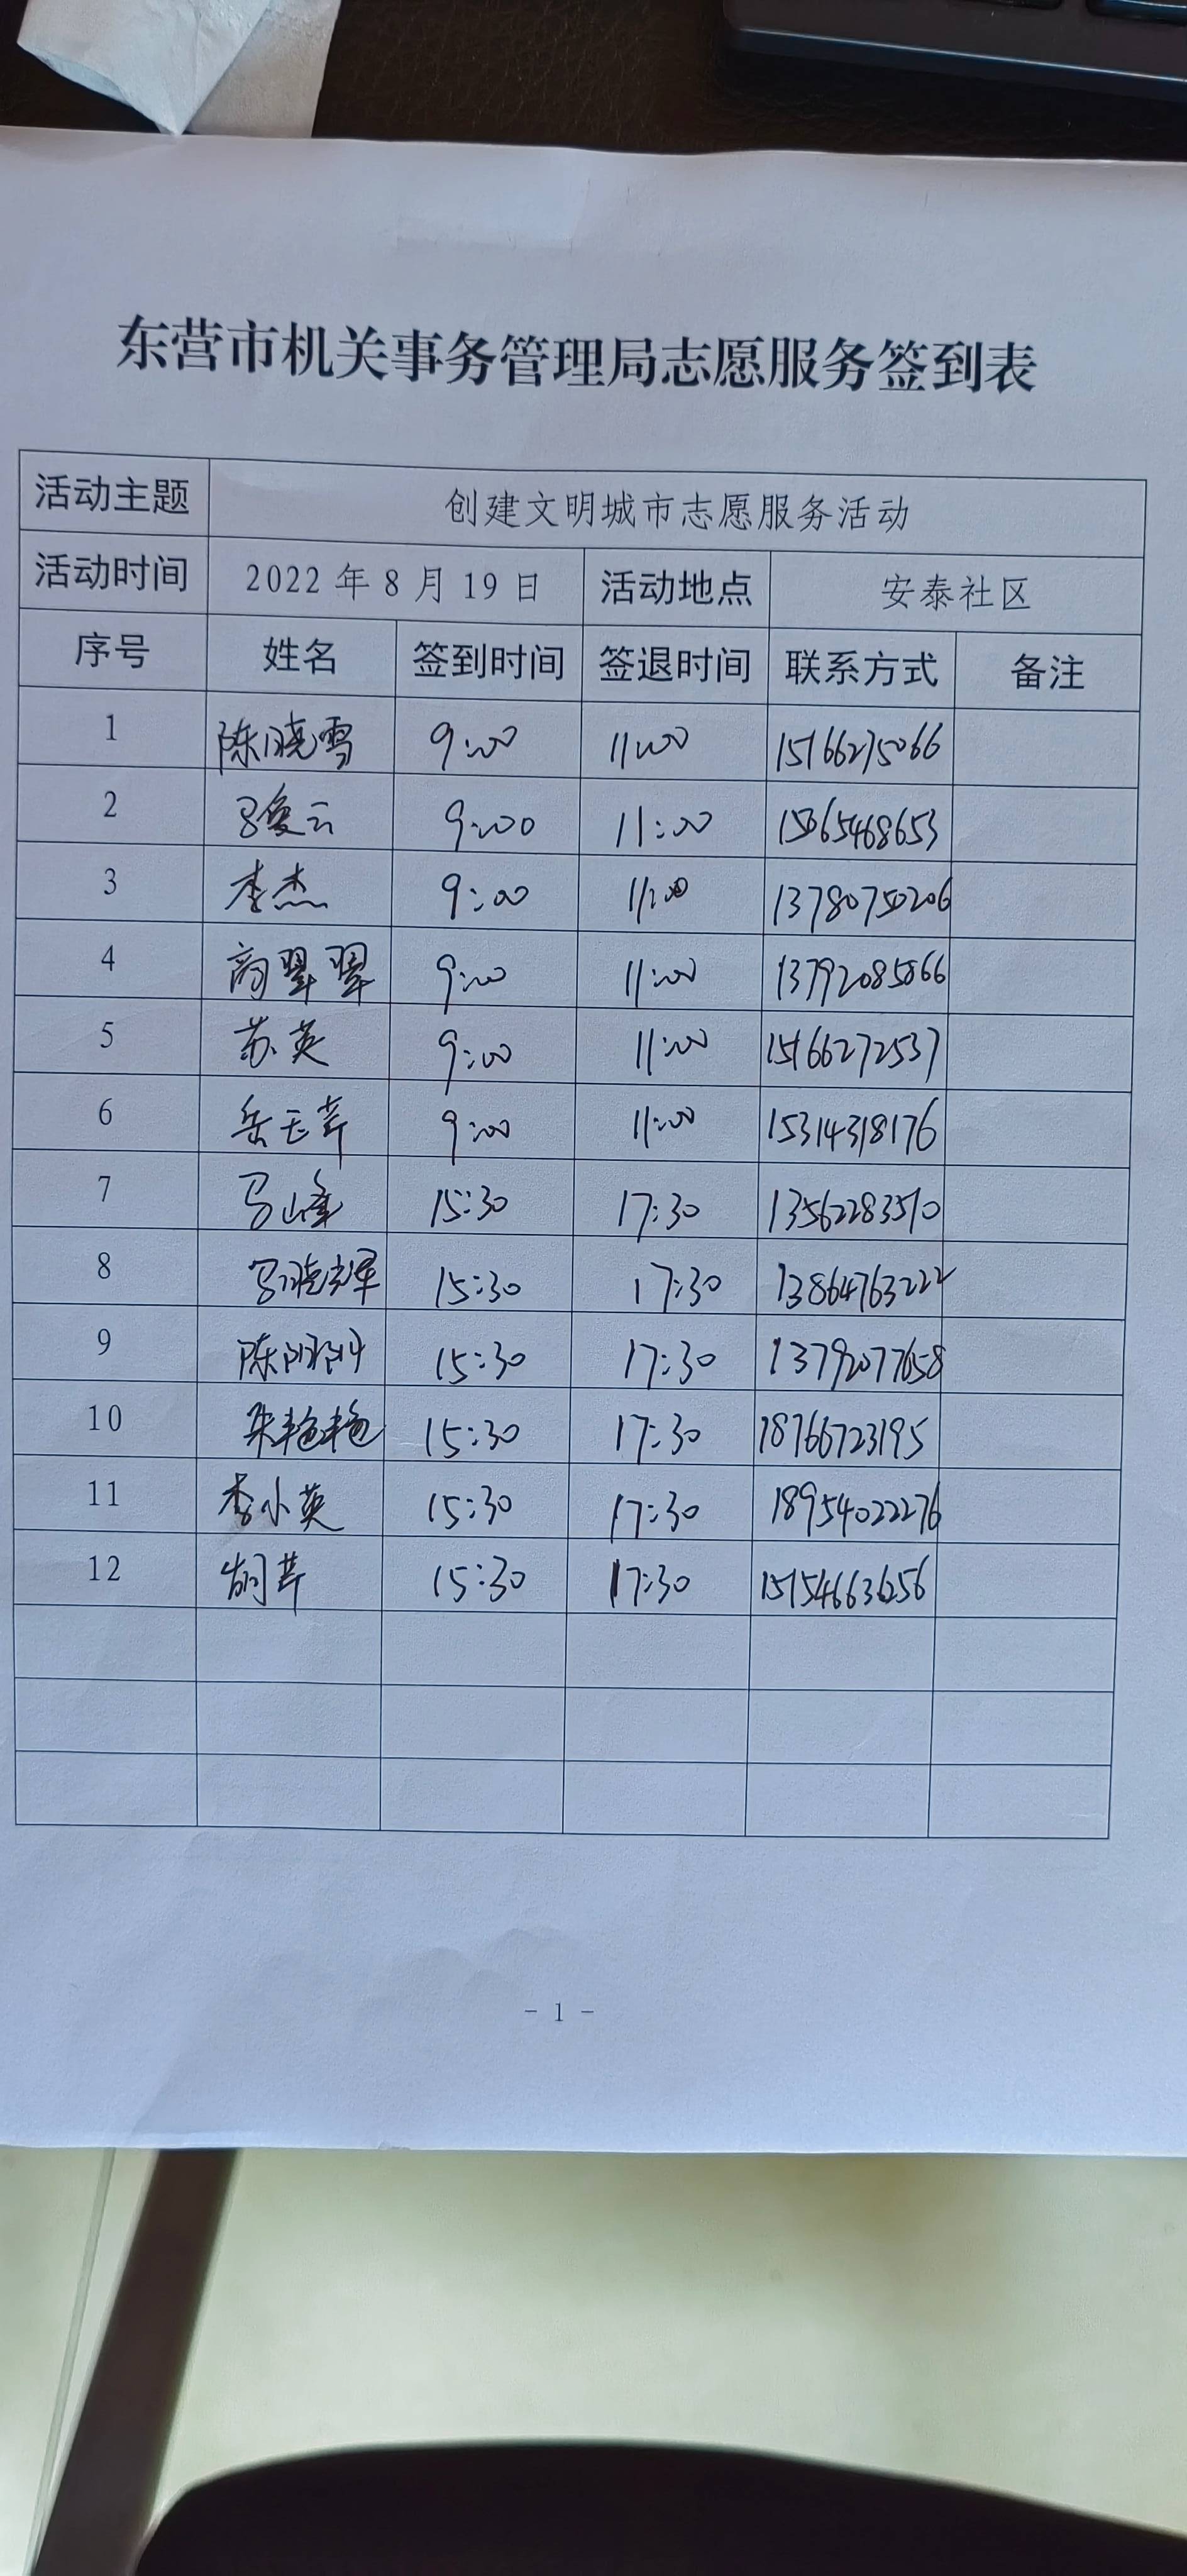 东营市机关事务管理局志愿服务签到表
活动主题 创建文明城市志愿服务活动
活动时间 2022年8月19日 活动地点 安泰社区
序号 姓名 签到时间 签退时间 联系方式 备注
1 陈晓雪 9:00 11:00 15166275066
2 马俊云 9:00 11:00 15065468653
3 李杰 9:00 11:00 13780750206
4 商翠翠 9:00 11:00 13792085066
5 苏英 9:00 11:00 15166272537
6 岳玉芹 9:00 11:00 15314318176
7 马山峰 15:30 17:30 13562283510
8 马晓军 15:30 17:30 13864763222
9 陈 15:30 17:30 13792077658
10 朱艳艳 15:30 17:30 18766723195
11 李小英 15:30 17:30 18954022276
12 胡芹 15:30 17:30 15154663656
- 1 -